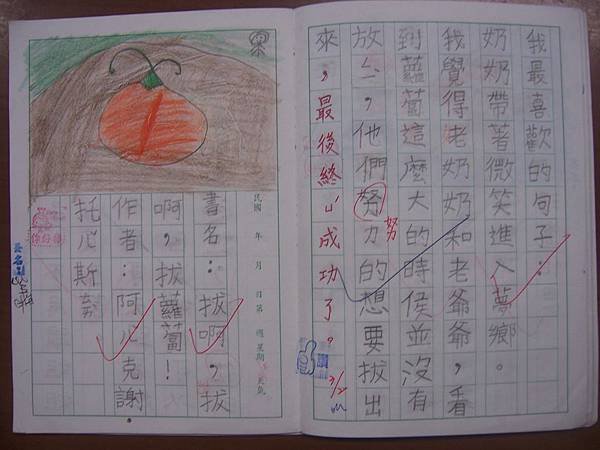 我最喜歡的句子：
奶奶帶著微笑進入夢鄉。
我覺得老奶奶和老爺爺，看
到蘿蔔這麼大的時侯並沒有
放，他們努力的想要拔出
努
來，最後終成功了。
3/2
民國 年 月 日 第 週 星期 天氣
書名：拔啊，拔
啊，拔蘿蔔！
作者：阿克謝
托斯